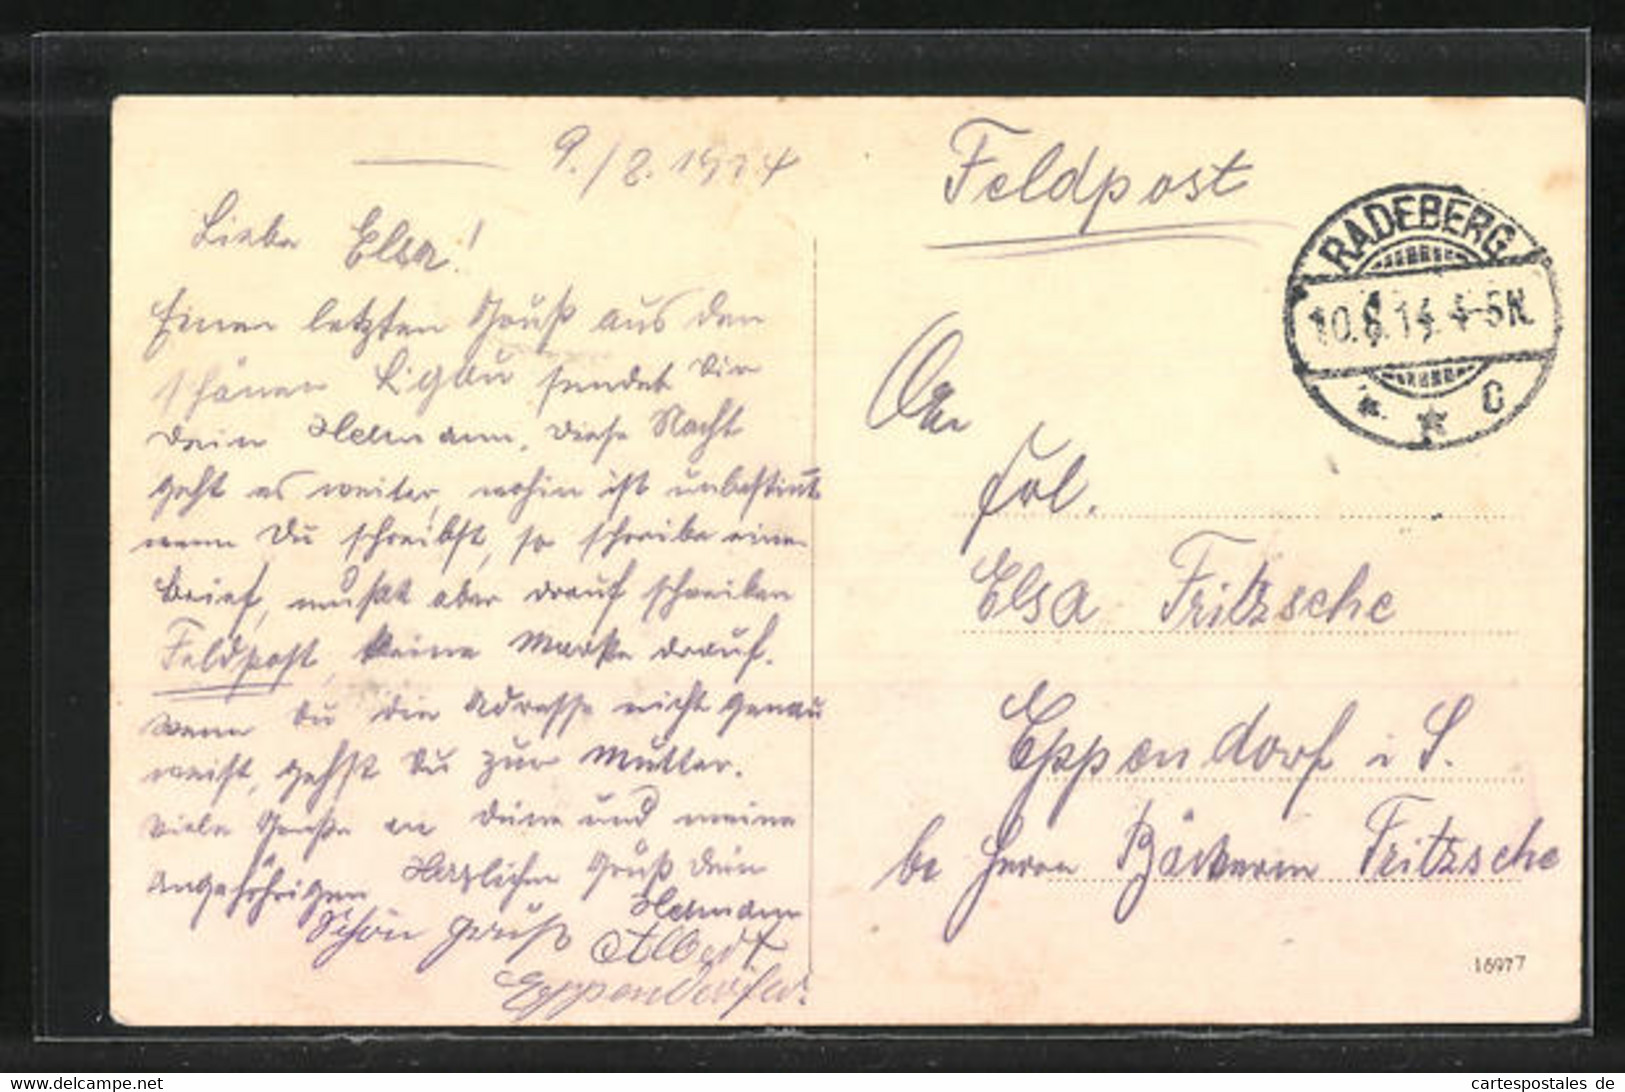 9./8. 1914
Liebe Elsa!
Einen letzten Gruß aus den
schönen Ligau sendet Dir
Dein Hermann, diese Nacht
geht es weiter, wohin ist unbestimt
wenn Du schreibst, so schreibe einen
Brief, mußt aber drauf schreiben
Feldpost, keine Marke drauf.
wenn Du die Adresse nicht genau
weist, gehst Du zur Mutter.
viele Grüße an deine und meine
Angehörigen Herzlichen Gruß Dein
Hermann
Schön Gruß Albert
Feldpost
RADEBERG
10.8.14. 4-5N.
* * c
An
Frl.
Elsa Fritzsche
Eppendorf i S.
be Herrn Bäckerm Fritzsche
16977
cartespostales de